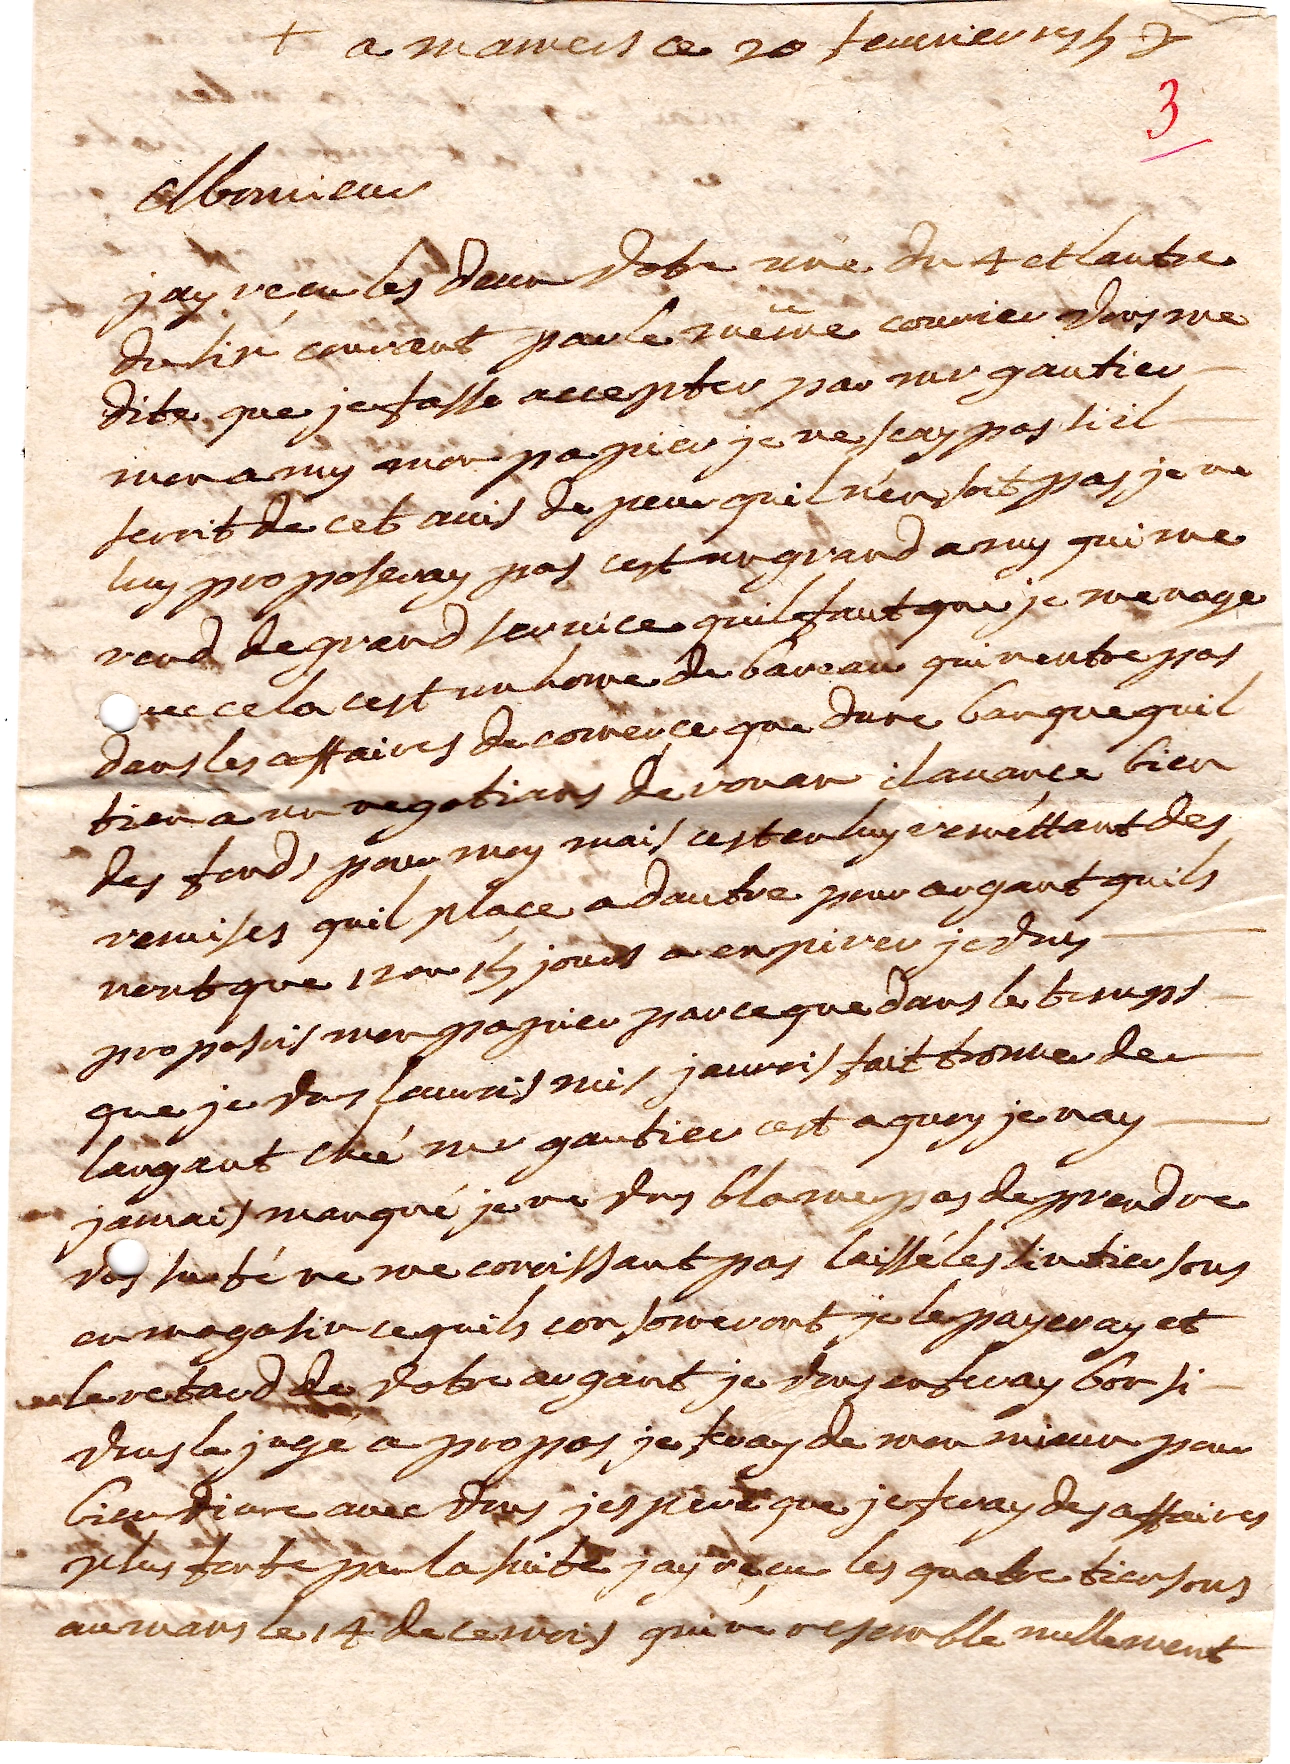 + a mamers ce 20 feuurier 175
3
Monsieur
jay reçu les deux votre une du 4 et lautre
du six courant par le même courier vous me
dite que je fasse accepter par mr gautier
mon amy mon papier je ne scay pas sil
seroit de cet auis de peur quil nen soit pas je ne
luy proposeray pas cest un grand amy qui me
rend de grand seruice quil faut que je menage
auec cela cest un home de bareau qui nentre pas
dans les affaires de comerce que dune banque quil
tien a un negotians de rouan il auance bien
des fonds pour moy mais cest en luy remettant des
remises quil place a dautre pour argant quils
nont que 12 ou 15 jours a expirer je vous
proposois mon papier parce que dans le temps
que je vous laurois mis jaurois fait trouuer de
largant ché mr gautier cest a quoy je nay
jamais manqué je ne vous blame pas de prendre
vos sureté ne me conoissant pas laissé les six tiersons
en magasin ce quils consomeront je le payeray et
le retard de votre argant je vous en feray bon si
vous le jugé a propos je feray de mon mieux pour
bien viure auec vous jespere que je feray des affaires
plus forte par la suite jay reçu les quatre tiersons
au mans le 14 de ce mois qui ne resemble nullement